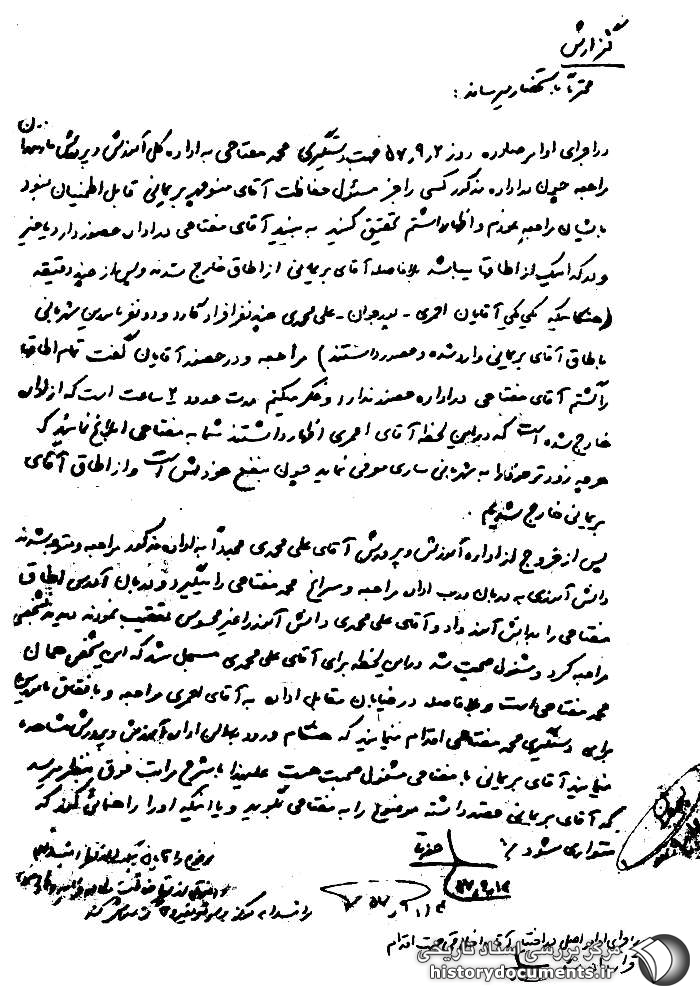 گزارش
محترماً باستحضار میرساند :
در اجرای اوامر صادره روز ۵۷٫۹٫۲ جهت دستگیری محمد مفتاحی به اداره کل آموزش و پرورش مازندران
مراجعه چون در اداره مذکور کسی را جز مسئول حفاظت آقای منوچهر بریمانی قابل اطمینان نبود
بایشان مراجعه نمودم و اظهار داشتم تحقیق کنید به بینید آقای مفتاحی در اداره حضور دارد یا خیر
و در کدامیک از اطاقها میباشد بلافاصله آقای بریمانی از اطاق خارج شدند و پس از چند دقیقه
(هنگامیکه یکی یکی آقایان احمری - پورجوان - علی محمدی چند نفر افراد گارد و دو نفر مامورین شهربانی
باطاق آقای بریمانی وارد شده و حضور داشتند) مراجعه و در حضور آقایان گفت تمام اطاقها
را گشتم آقای مفتاحی در اداره حضور ندارد و فکر میکنم مدت حدود ۲ ساعت است که از اداره
خارج شده است که در این لحظه آقای احمری اظهار داشتند شما به مفتاحی ابلاغ نمائید که
هر چه زودتر خود را به شهربانی ساری معرفی نماید چون بنفع خودش است و از اطاق آقای
بریمانی خارج شدیم .
پس از خروج از اداره آموزش و پرورش آقای علی محمدی مجدداً به اداره مذکور مراجعه و متوجه شدند
دانش آموزی به دربان درب اداره مراجعه و سراغ محمد مفتاحی را میگیرد و دربان آدرس اطاق
مفتاحی را بدانش آموز داد و آقای علی محمدی دانش آموز را غیر محسوس تعقیب نموده به شخصی
مراجعه کرد و مشغول صحبت شد در این لحظه برای آقای علی محمدی مسجل شد که این شخص همان
محمد مفتاحی است و بلافاصله در خیابان مقابل اداره به آقای احمری مراجعه و باتفاق مامورین
برای دستگیری محمد مفتاحی اقدام مینمایند که هنگام ورود بسالن اداره آموزش و پرورش مشاهده
مینمایند آقای بریمانی با مفتاحی مشغول صحبت هست علیهذا با شرح مراتب فوق بنظر میرسد
که آقای بریمانی قصد داشته موضوع را به مفتاحی بگوید و یا اینکه او را راهنمائی کند که
متواری شود
۵۷٫۹٫۱۲
۵۷٫۹٫۱۴
مرکز بررسی اسناد تاریخی
historydocuments.ir